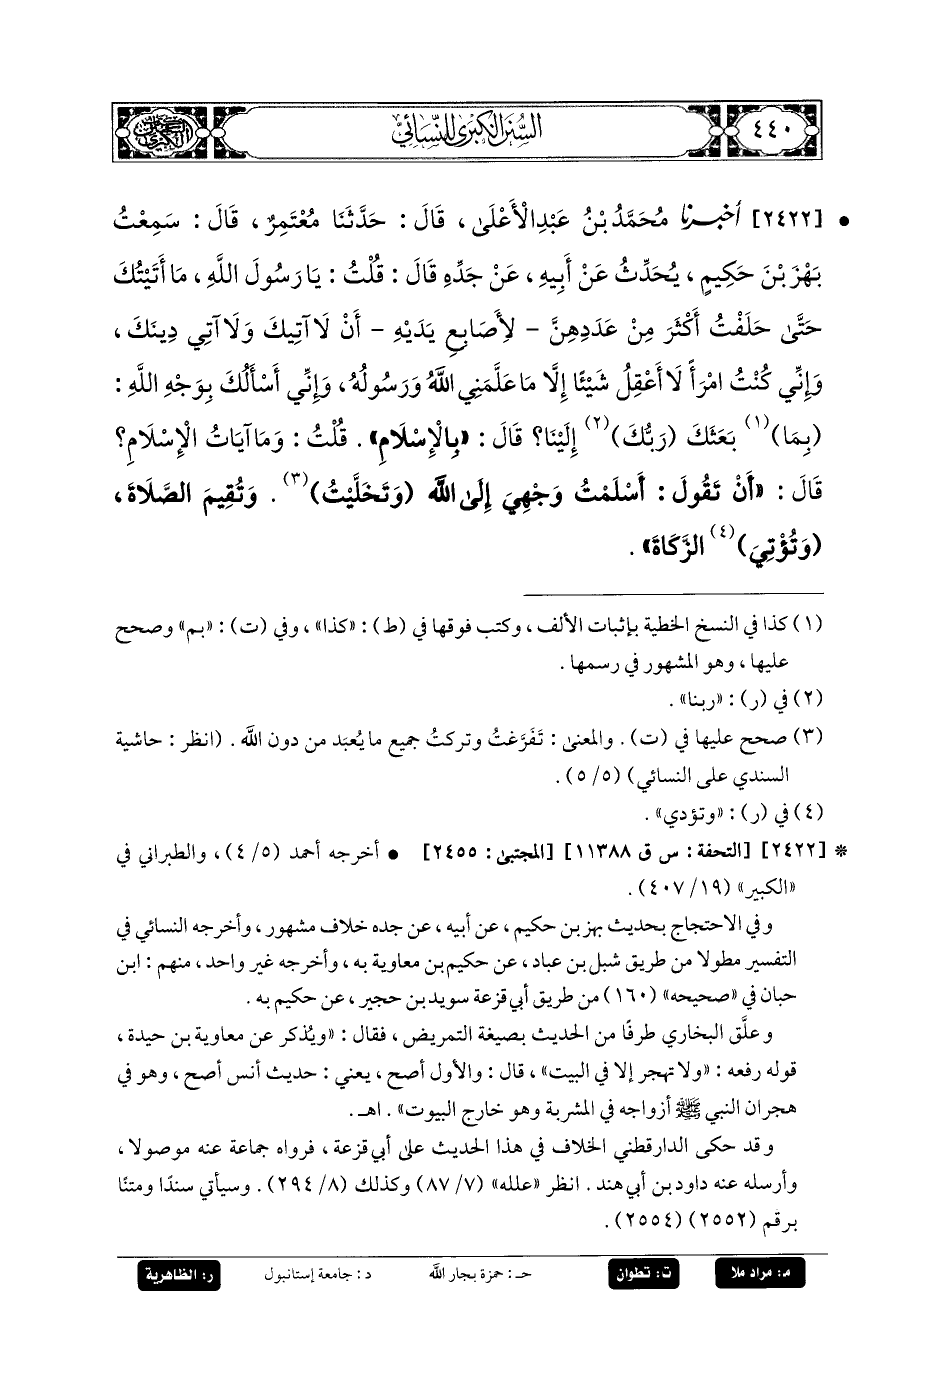 ٤٤٠
السنن الكبرى للنسائي
• [٢٤٢٢] أخبرنا مُحَمَّدُ بْنُ عَبْدِالْأَعْلَى ، قَالَ : حَدَّثَنَا مُعْتَمِرٌ ، قَالَ : سَمِعْتُ
بَهْزَ بْنَ حَكِيمٍ ، يُحَدِّثُ عَنْ أَبِيهِ ، عَنْ جَدِّهِ قَالَ : قُلْتُ : يَا رَسُولَ اللَّهِ ، مَا أَتَيْتُكَ
حَتَّى حَلَفْتُ أَكْثَرَ مِنْ عَدَدِهِنَّ – لِأَصَابِعِ يَدَيْهِ – أَنْ لَا آتِيكَ وَلَا آتِي دِينَكَ ،
وَإِنِّي كُنْتُ امْرَأً لَا أَعْقِلُ شَيْئًا إِلَّا مَا عَلَّمَنِي اللَّهُ وَرَسُولُهُ ، وَإِنِّي أَسْأَلُكَ بِوَجْهِ اللَّهِ :
(بِمَا)(١) بَعَثَكَ (رَبُّكَ)(٢) إِلَيْنَا؟ قَالَ : «بِالْإِسْلَامِ» . قُلْتُ : وَمَا آيَاتُ الْإِسْلَامِ؟
قَالَ : «أَنْ تَقُولَ : أَسْلَمْتُ وَجْهِيَ إِلَى اللَّهِ (وَتَخَلَّيْتُ)(٣) . وَتُقِيمَ الصَّلَاةَ ،
(وَتُؤْتِيَ)(٤) الزَّكَاةَ» .
(١) كذا في النسخ الخطية بإثبات الألف ، وكتب فوقها في (ط) : «كذا» ، وفي (ت) : «بم» وصحح
عليها ، وهو المشهور في رسمها .
(٢) في (ر) : «ربنا» .
(٣) صحح عليها في (ت) . والمعنى : تَفَرَّغتُ وتركتُ جميع ما يُعبَد من دون الله . (انظر : حاشية
السندي على النسائي) (٥/ ٥) .
(٤) في (ر) : «وتؤدي» .
* [٢٤٢٢] [التحفة : س ق ١١٣٨٨] [المجتبى : ٢٤٥٥] • أخرجه أحمد (٥/ ٤) ، والطبراني في
«الكبير» (١٩/ ٤٠٧) .
وفي الاحتجاج بحديث بهز بن حكيم ، عن أبيه ، عن جده خلاف مشهور ، وأخرجه النسائي في
التفسير مطولا من طريق شبل بن عباد ، عن حكيم بن معاوية به ، وأخرجه غير واحد ، منهم : ابن
حبان في «صحيحه» (١٦٠) من طريق أبي قزعة سويد بن حجير ، عن حكيم به .
وعلَّق البخاري طرفًا من الحديث بصيغة التمريض ، فقال : «ويُذكر عن معاوية بن حيدة ،
قوله رفعه : «ولا تهجر إلا في البيت» ، قال : والأول أصح ، يعني : حديث أنس أصح ، وهو في
هجران النبي ﷺ أزواجه في المشربة وهو خارج البيوت» . اهـ .
وقد حكى الدارقطني الخلاف في هذا الحديث على أبي قزعة ، فرواه جماعة عنه موصولا ،
وأرسله عنه داود بن أبي هند . انظر «علله» (٧/ ٨٧) وكذلك (٨/ ٢٩٤) . وسيأتي سندًا ومتنًا
برقم (٢٥٥٢) (٢٥٥٤) .
م: مراد ملا ت: تطوان حـ: حمزة بجار الله د: جامعة إستانبول ر: الظاهرية